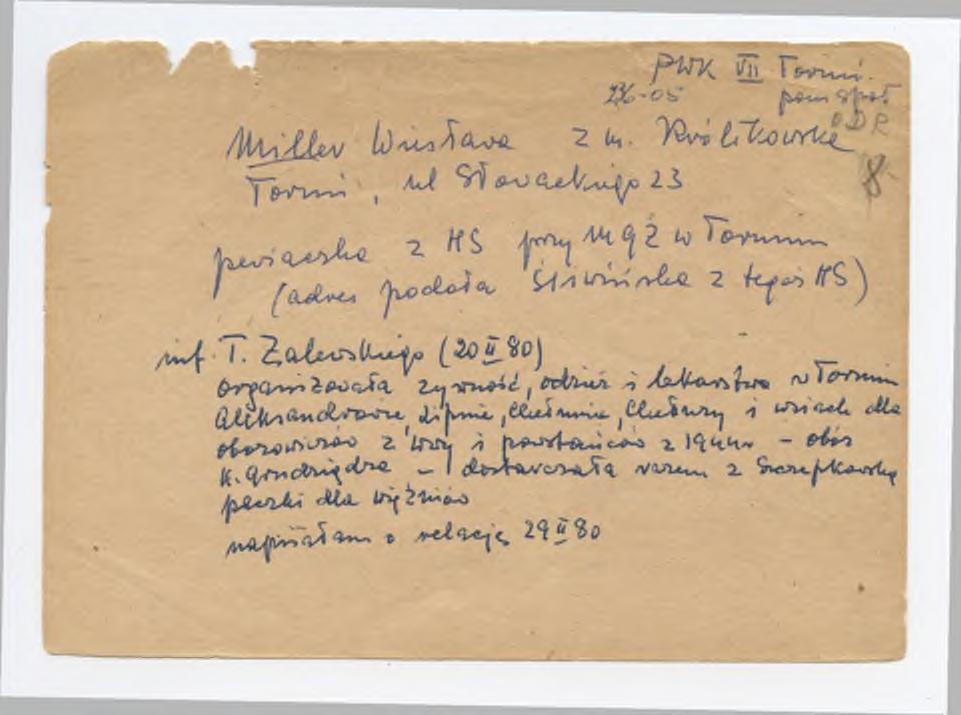 PWK VII Toruń.
236-05 pom społ
ODR
Miller Wiesława z m. Królikowska
8
Toruń, ul Słowackiego 23
pewiaczka z HS przy MGŻ w Toruniu
(adres podała Śliwińska z tegoż HS)
inf. T. Zalewskiego (20 II 80)
organizowała żywność, odzież i lekarstwa w Toruniu
Aleksandrowie, Lipnie, Chełmnie, Chełmży i wsiach dla
obozowiczów z W-wy i powstańców z 1944 r – obóz
k. Grudziądza – dostarczała razem z Szczepkowską
paczki dla więźniów
napisałam o relację 29 II 80